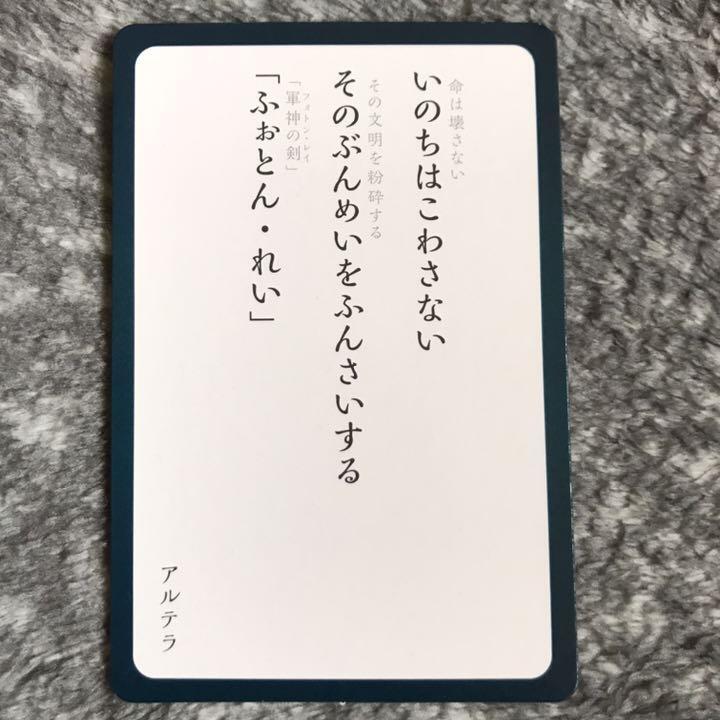 命は壊さない
いのちはこわさない
その文明を粉砕する
そのぶんめいをふんさいする
フォトン・レイ
「軍神の剣」
「ふぉとん・れい」
アルテラ